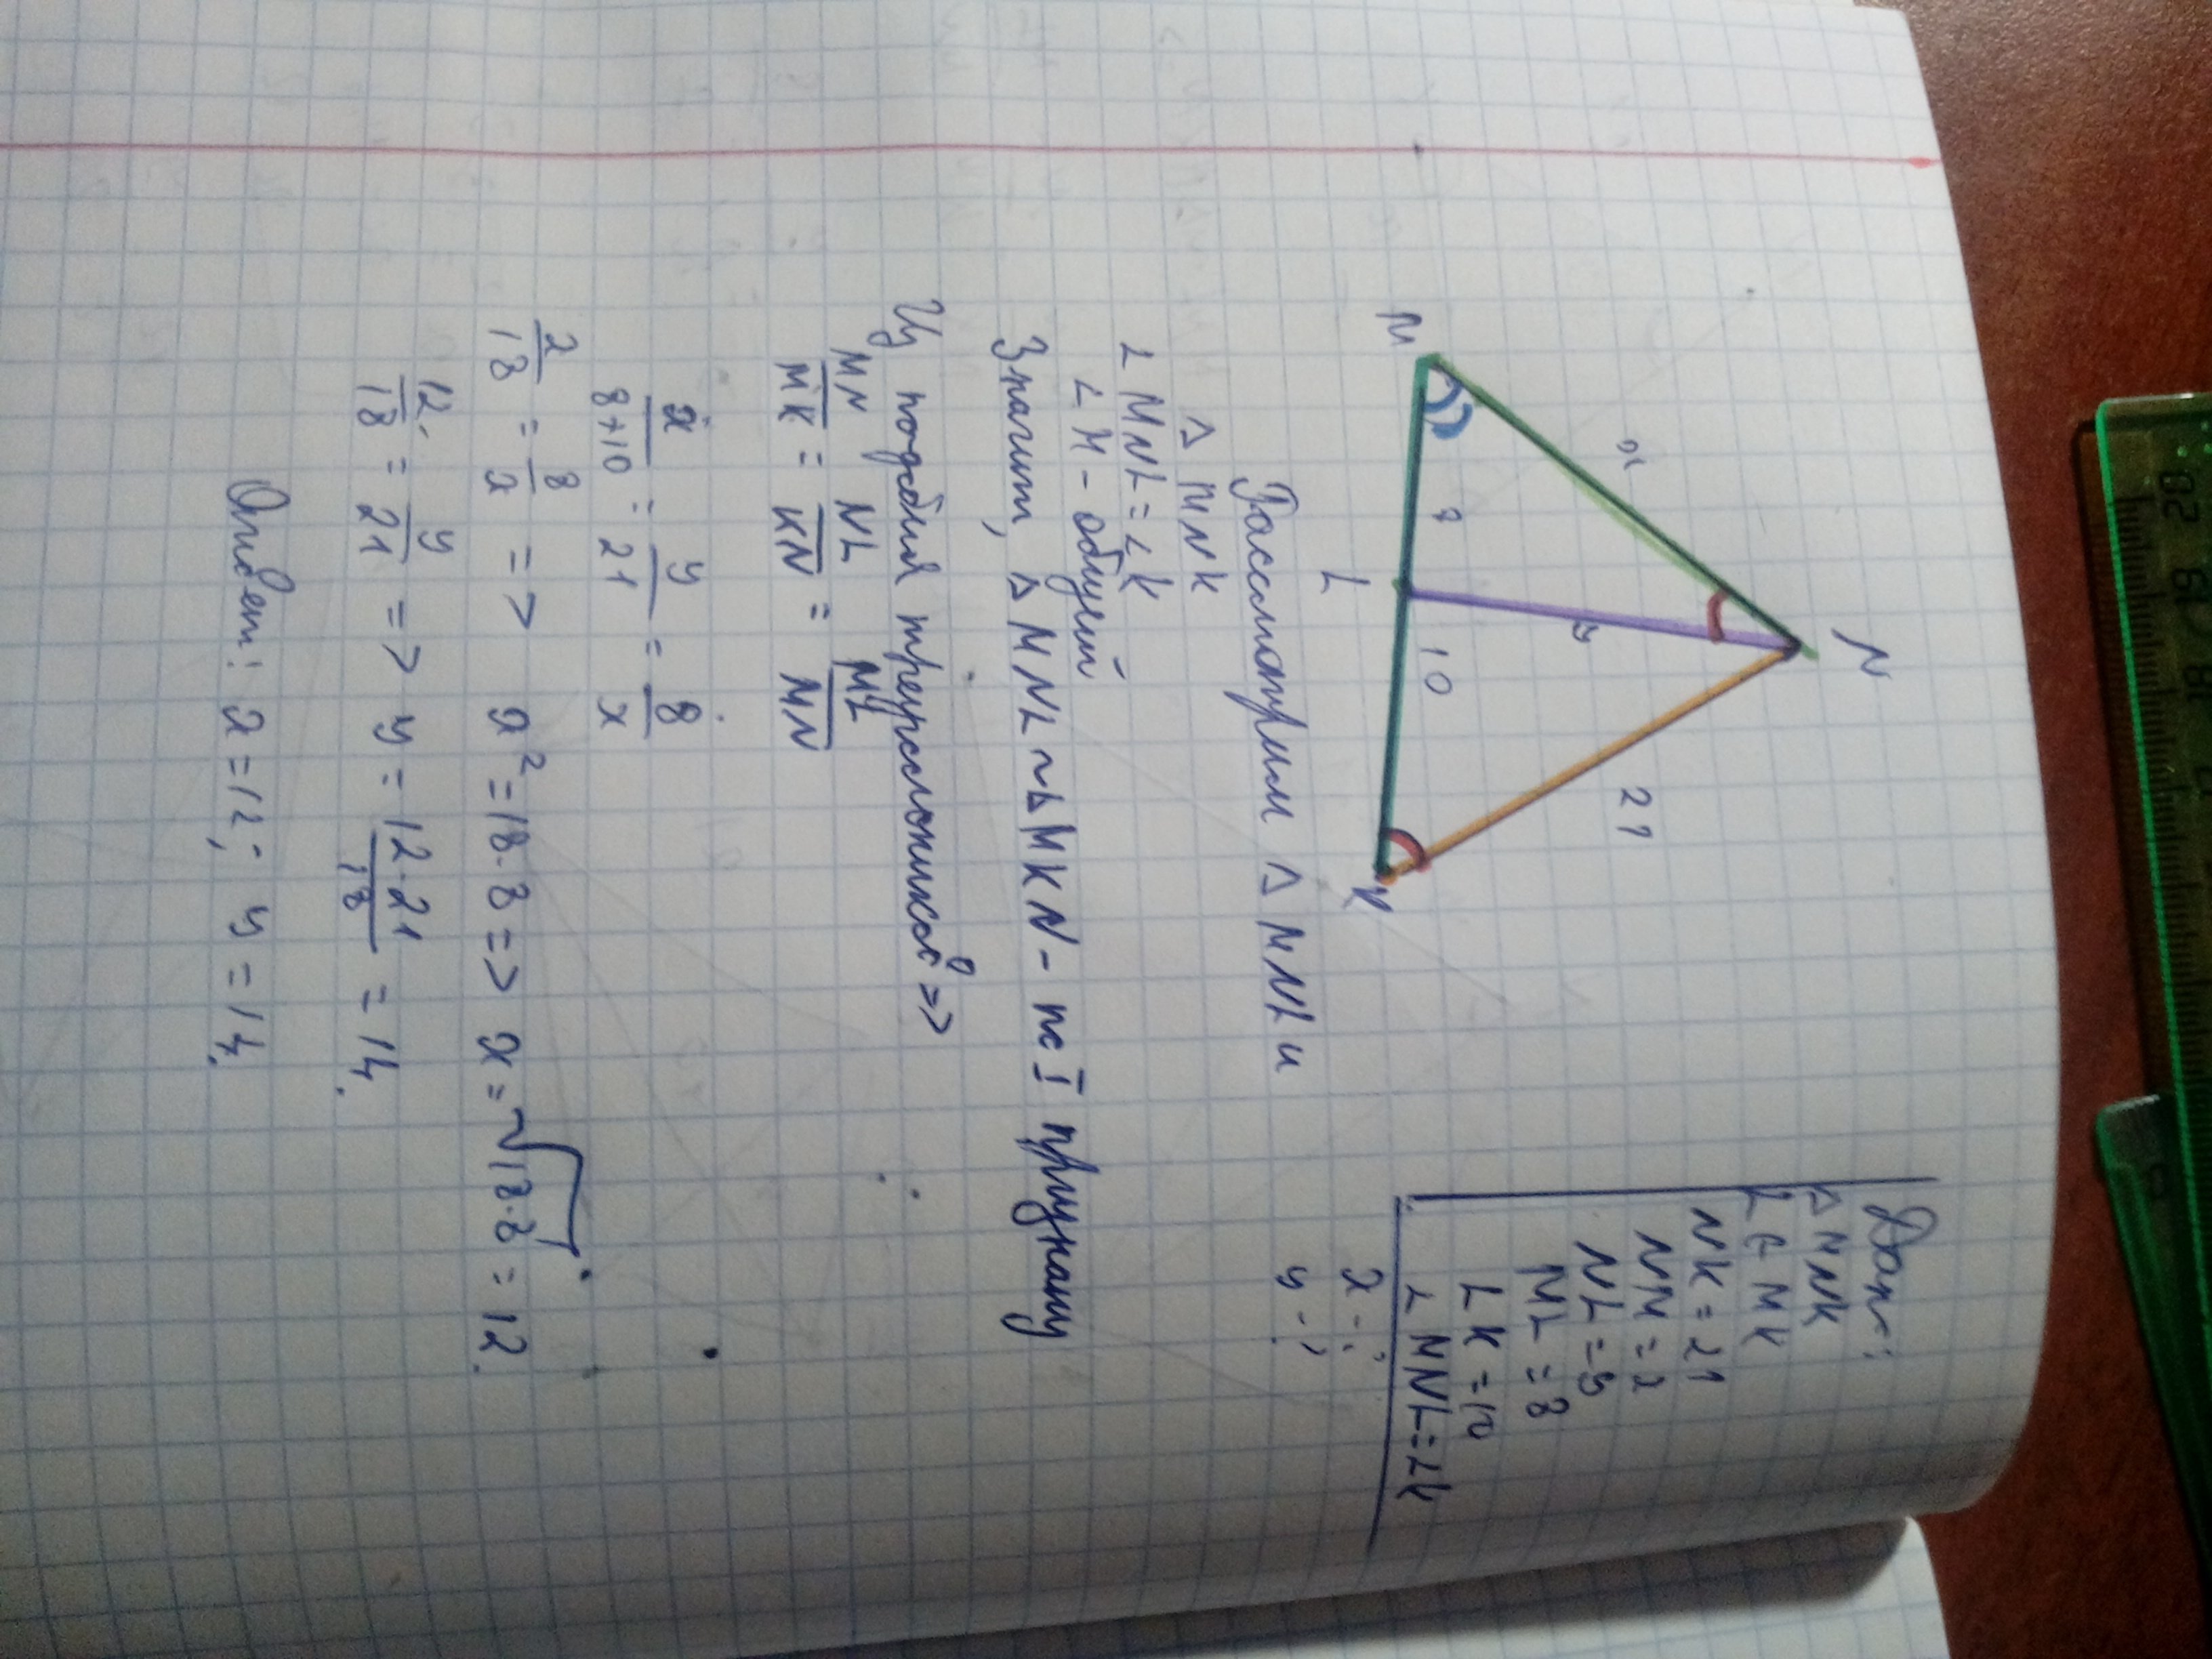 N
M
K
L
x
y
8
10
21
Дано:
△ MNK
L ∈ MK
NK = 21
NM = x
NL = y
ML = 8
LK = 10
∠ MNL = ∠K
x - ?
y - ?
Рассмотрим △ MNL и
△ MNK
∠ MNL = ∠K
∠ M - общий
Значит, △ MNL ~ △ MKN - по I признаку
Из подобия треугольников =>
MN/MK = NL/KN = ML/MN
x/8+10 = y/21 = 8/x
x/18 = 8/x => x² = 18·8 => x = √18·8 = 12.
12/18 = y/21 => y = 12·21/18 = 14.
Ответ: x = 12; y = 14.
20 19 18 17